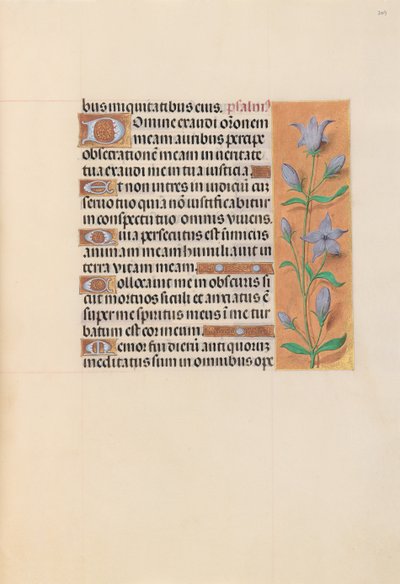 209
bus iniquitatibus eius. psalm9
Domine exaudi or̄onem
meam auribus percipe
obsecrationē meam in ueritate
tua exaudi me in tua iusticia.
Et non intres in iudiciū cū
seruo tuo quia nō iustificabitur
in conspectu tuo omnis viuens.
Quia persecutus est īimicus
animam meam humiliauit in
terra vitam meam.
Collocauit me in obscuris si
cut mortuos seculi et anxiatus ē
super me spiritus meus ī me tur
batum est cor meum.
Memor fui dierū antiquorum
meditatus sum in omnibus ope